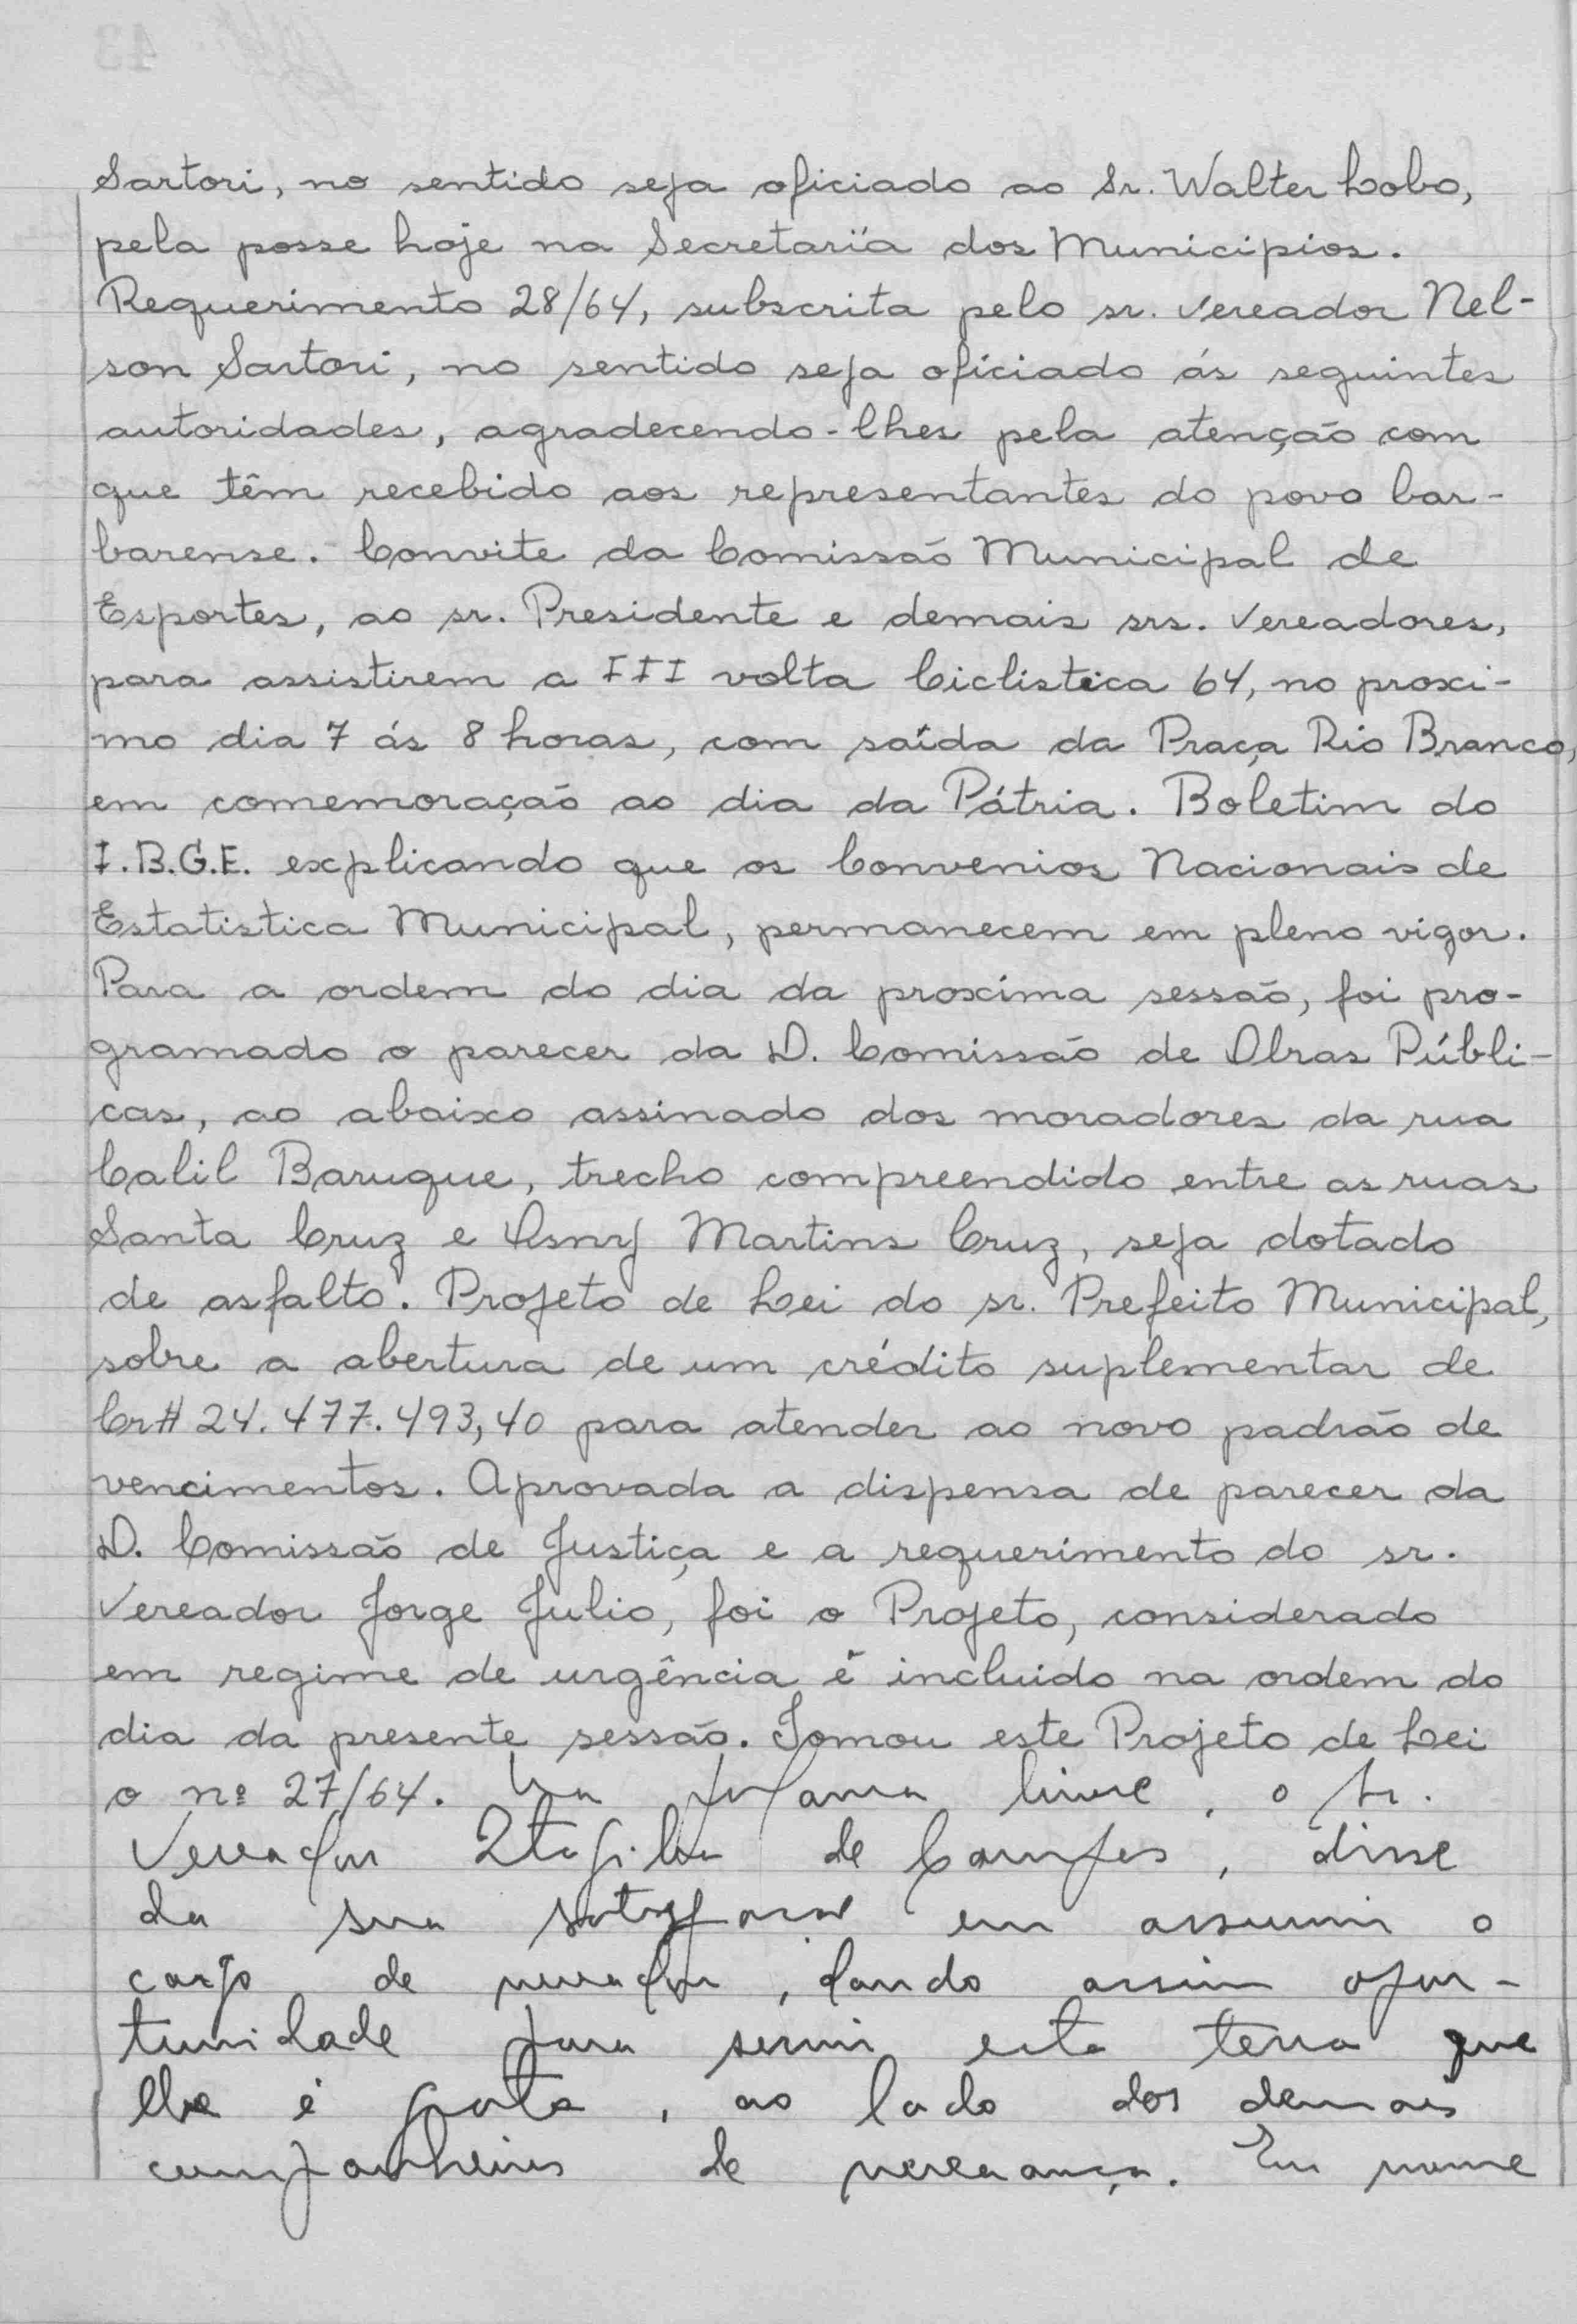 Sartori, no sentido seja oficiado ao Sr. Walter Lobo,
pela posse hoje na Secretaría dos Municipios.
Requerimento 28/64, subscrita pelo sr. Vereador Nel-
son Sartori, no sentido seja oficiado ás seguintes
autoridades, agradecendo-lhes pela atenção com
que têm recebido aos representantes do povo bar-
barense. Convite da Comissão Municipal de
Esportes, ao sr. Presidente e demais srs. Vereadores,
para assistirem a III volta Ciclistica 64, no proxi-
mo dia 7 ás 8 horas, com saída da Praça Rio Branco,
em comemoração ao dia da Pátria. Boletim do
I.B.G.E. explicando que os Convenios Nacionais de
Estatistica Municipal, permanecem em pleno vigor.
Para a ordem do dia da proxima sessão, foi pro-
gramado o parecer da D. Comissão de Obras Públi-
cas, ao abaixo assinado dos moradores da rua
Calil Baruque, trecho compreendido entre as ruas
Santa Cruz e Martins Cruz, seja dotado
de asfalto. Projeto de Lei do sr. Prefeito Municipal,
sobre a abertura de um crédito suplementar de
Cr# 24.477.493,40 para atender ao novo padrão de
vencimentos. Aprovada a dispensa de parecer da
D. Comissão de Justiça e a requerimento do sr.
Vereador Jorge Julio, foi o Projeto, considerado
em regime de urgência é incluido na ordem do
dia da presente sessão. Tomou este Projeto de Lei
o nº 27/64. Na livre, o Sr.
Vereador de Campos, disse
da sua satisfação em assumir o
cargo de vereador, dando assim opor-
tunidade para servir esta terra que
lhe é grata, ao lado dos demais
companheiros de vereança. Em nome